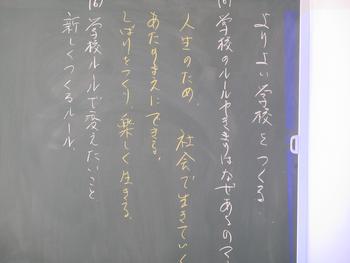 よりよい学校をつくる
問学校のルールやきまりはなぜあるのマ
人生のため、社会で生きていく
あたりまえにできる。
しばりをつくり、楽しく生きる。
問学校ルールで変えたいこと
新しくつくるルール、